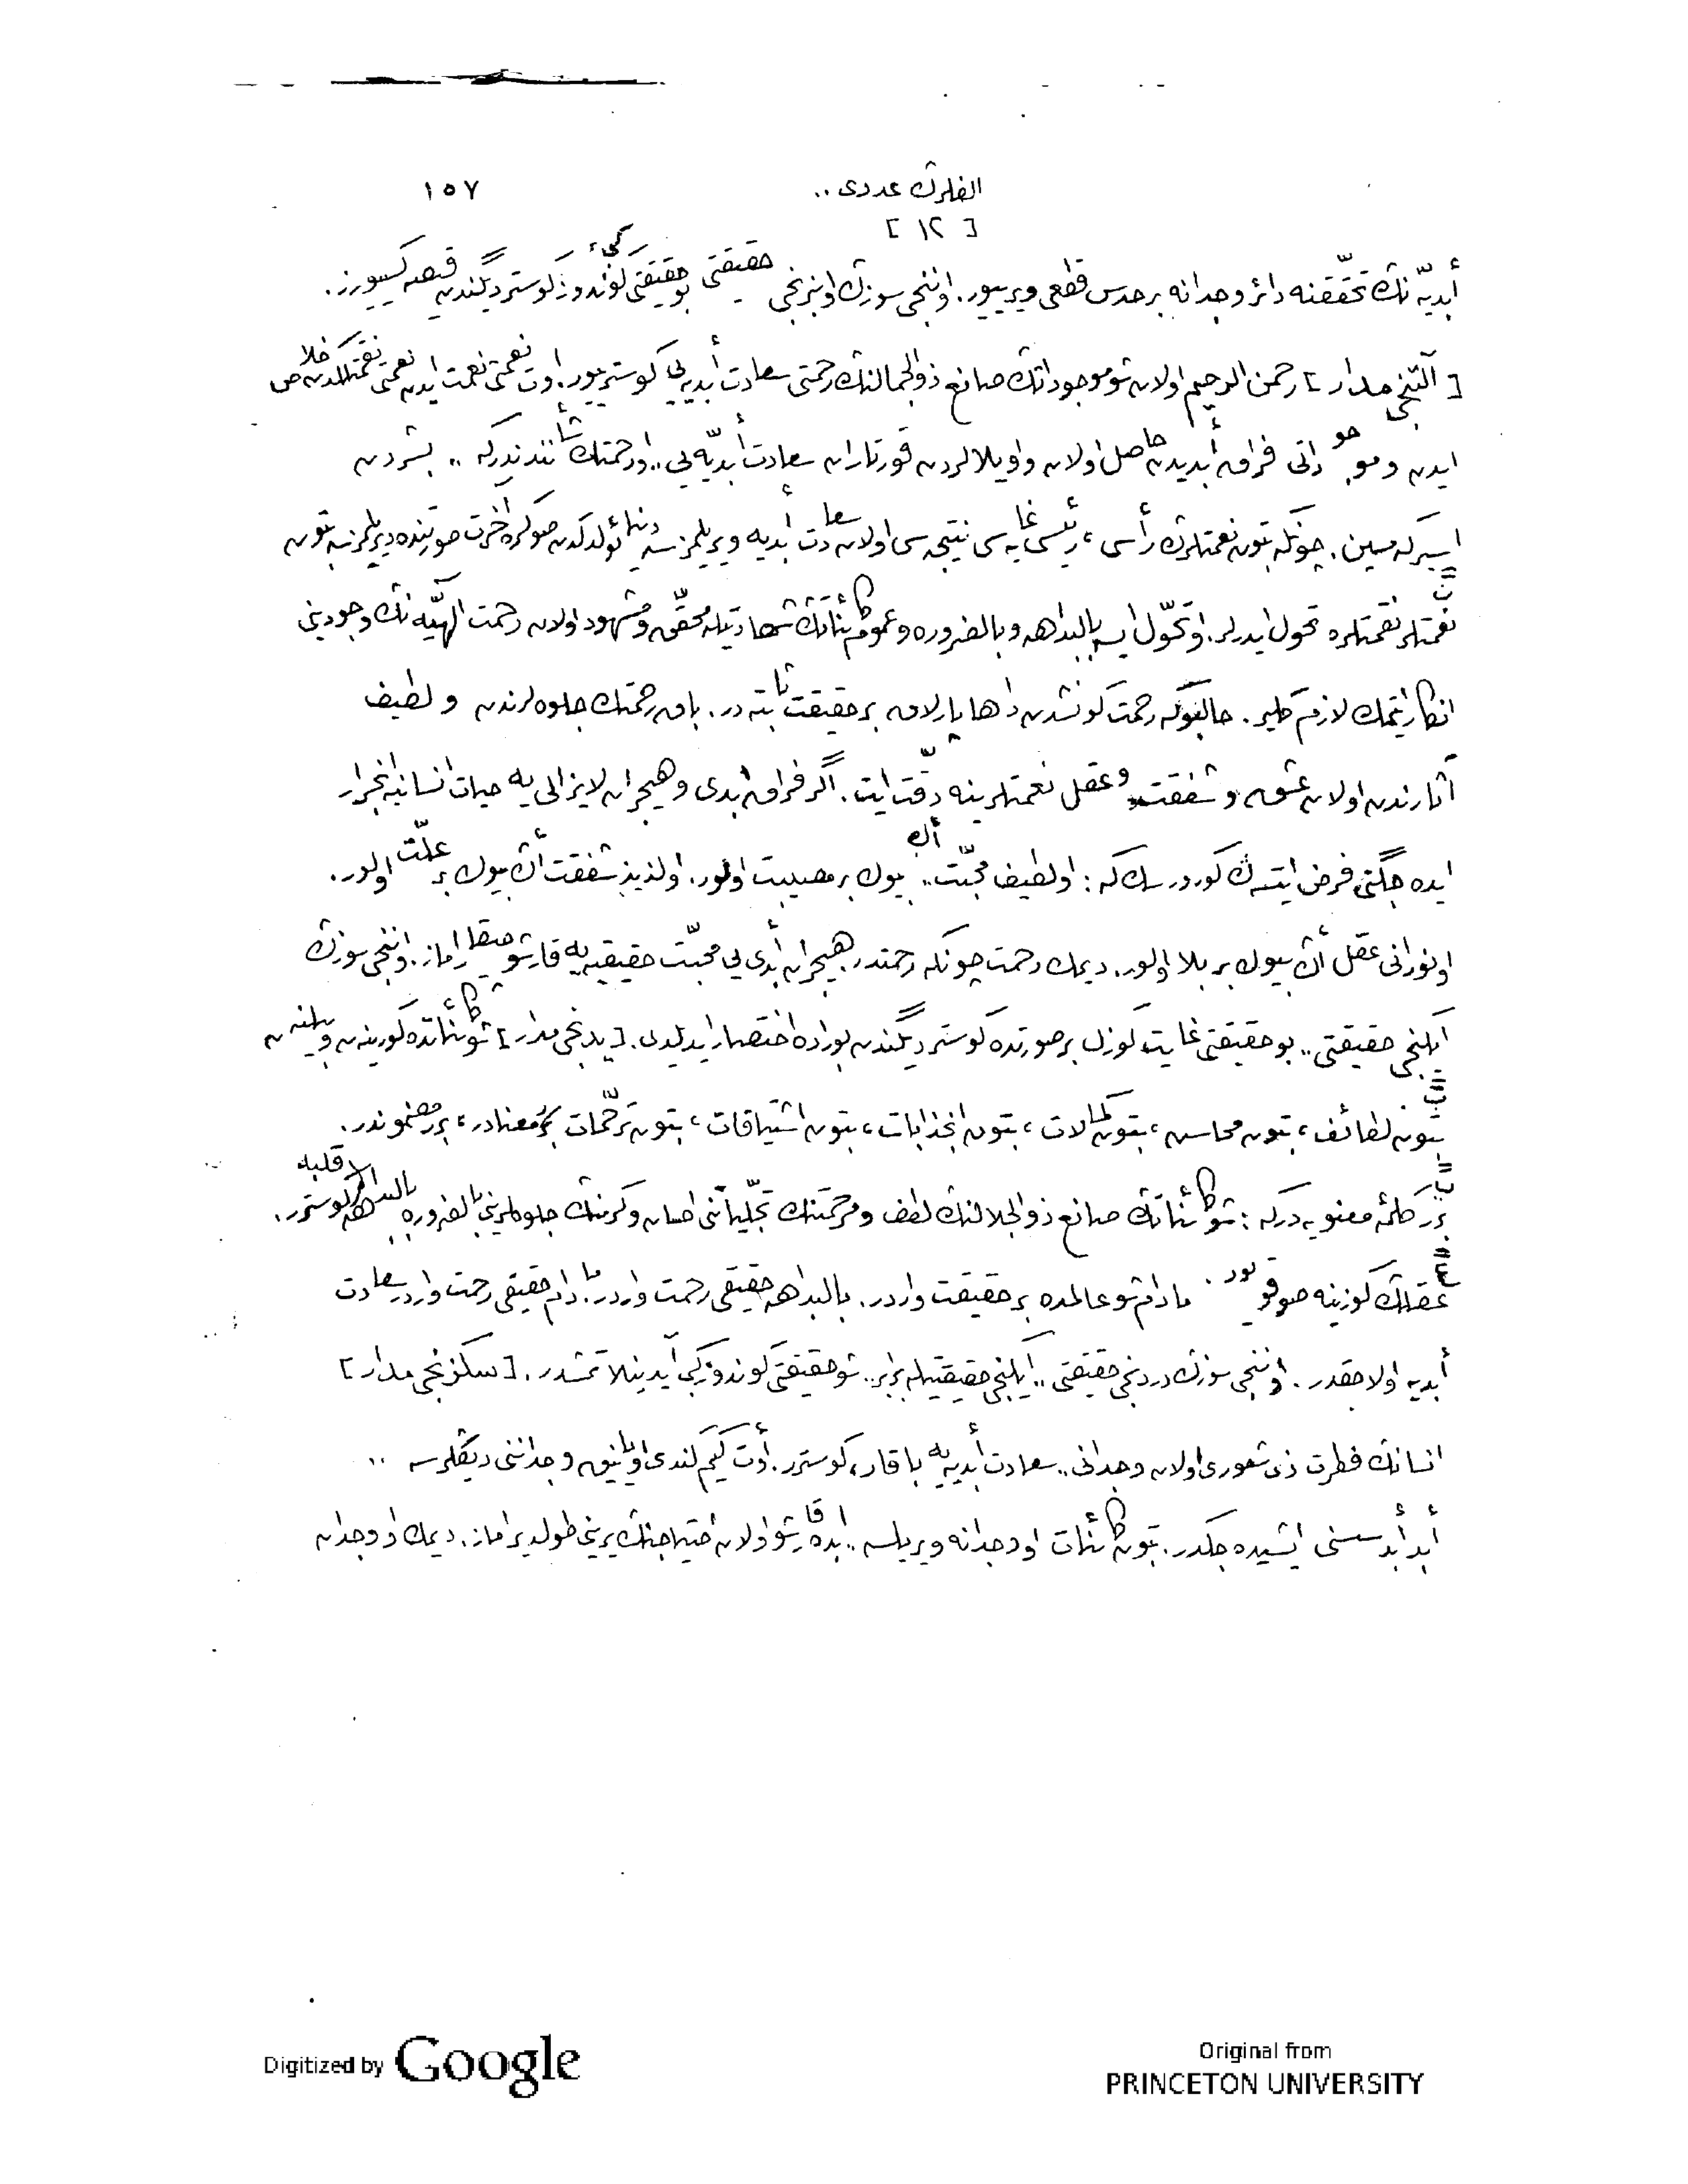 الفلرڭ عددى ..
١٥٧
[ ١٢ ]
أبديّه نڭ تحقّقنه دائر وجدانه بر حدس قطعى ويرييور. اوننجى سوزڭ اونبرنجى حقيقتى بو حقيقتى كوندوز كبى كوسترديگندن قيصه كسييورز.
[ آلتنجى مدار ] رحمن الرحيم اولان شو موجوداتڭ صانع ذوالجمالنڭ رحمتى سعادت أبديه يى كوسترييور. اوت نعمتى نعمت ايدن نعمتى نقمتلكدن خلاص
ايدن و موجوداتى فراق أبديدن حاصل اولان واويلالردن قورتاران سعادت أبديّه يى .. او رحمتڭ شأنندندركه .. بشردن
اسيركه مسين. چونكه بتون نعمتلرڭ رأسى، رئيسى غايه سى نتيجه سى اولان سعادت أبديه ويريلمزسه دنيا ئولدكدن صوكره آخرت صورتنده ديريلمزسه بتون
نعمتلر نقمتلره تحول ايدرلر. او تحوّل ايسه بالبداهه وبالضروره و عموم كائناتڭ شهادتيله محقّق و مشهود اولان رحمت الهيّه نڭ وجودينى
انكار ايتمك لازم كلير. حالبوكه رحمت كونشدن داها پارلاق بر حقيقت ثابته در. باق رحمتڭ جلوه لرندن و لطيف
آثارندن اولان عشق و شفقت و عقل نعمتلرينه دقّت ايت. اگر فراق أبدى و هيجران لايزالى يه حيات انسانيه انجرار
ايده جگنى فرض ايتسه ڭ كوررسڭ كه : او لطيف محبّت .. أڭ بيوك بر مصيبت اولور. او لذيذ شفقت أڭ بيوك بر علّت اولور.
او نورانى عقل أڭ بيوك بر بلا اولور. ديمك رحمت چونكه رحمتدر هيجران أبدى يى محبّت حقيقيه يه قارشو چيقاراماز. اوننجى سوزڭ
ايكنجى حقيقتى .. بو حقيقتى غايت كوزل بر صورتده كوسترديگندن بوراده اختصار ايديلدى. [ يدنجى مدار ] شو كائناتده كورينن و بيلنن
بتون لطائف، بتون محاسن، بتون كمالات، بتون انجذابات، بتون اشتياقات، بتون ترحّمات برر معنادر، برر مضموندر.
برر كلمهٔ معنويه دركه : شو كائناتڭ صانع ذوالجلالنڭ لطف و مرحمتنڭ تجلّياتنى احسان و كرمنڭ جلوه لرينى بالضروره بالبداهه قلبه كوسترر.
عقلڭ كوزينه صوقويور. مادام شو عالمده بر حقيقت واردر. بالبداهه حقيقى رحمت واردر. مادام حقيقى رحمت واردر سعادت
أبديه اولاجقدر. اوننجى سوزڭ دردنجى حقيقتى .. ايكنجى حقيقتيله برابر .. شو حقيقتى كوندوز كبى آيدينلاتمشدر. [ سكزنجى مدار ]
انسانڭ فطرت ذى شعورى اولان وجدانى .. سعادت أبديه يه باقار، كوسترر. أوت كيم كندى اويانيق وجداننى ديڭلرسه ..
أبد أبد سسنى ايشيده جكدر. بتون كائنات او وجدانه ويريلسه .. ابده قارشو اولان احتياجنڭ يرينى طولديراماز. ديمك او وجدان
Digitized by Google
Original from
PRINCETON UNIVERSITY